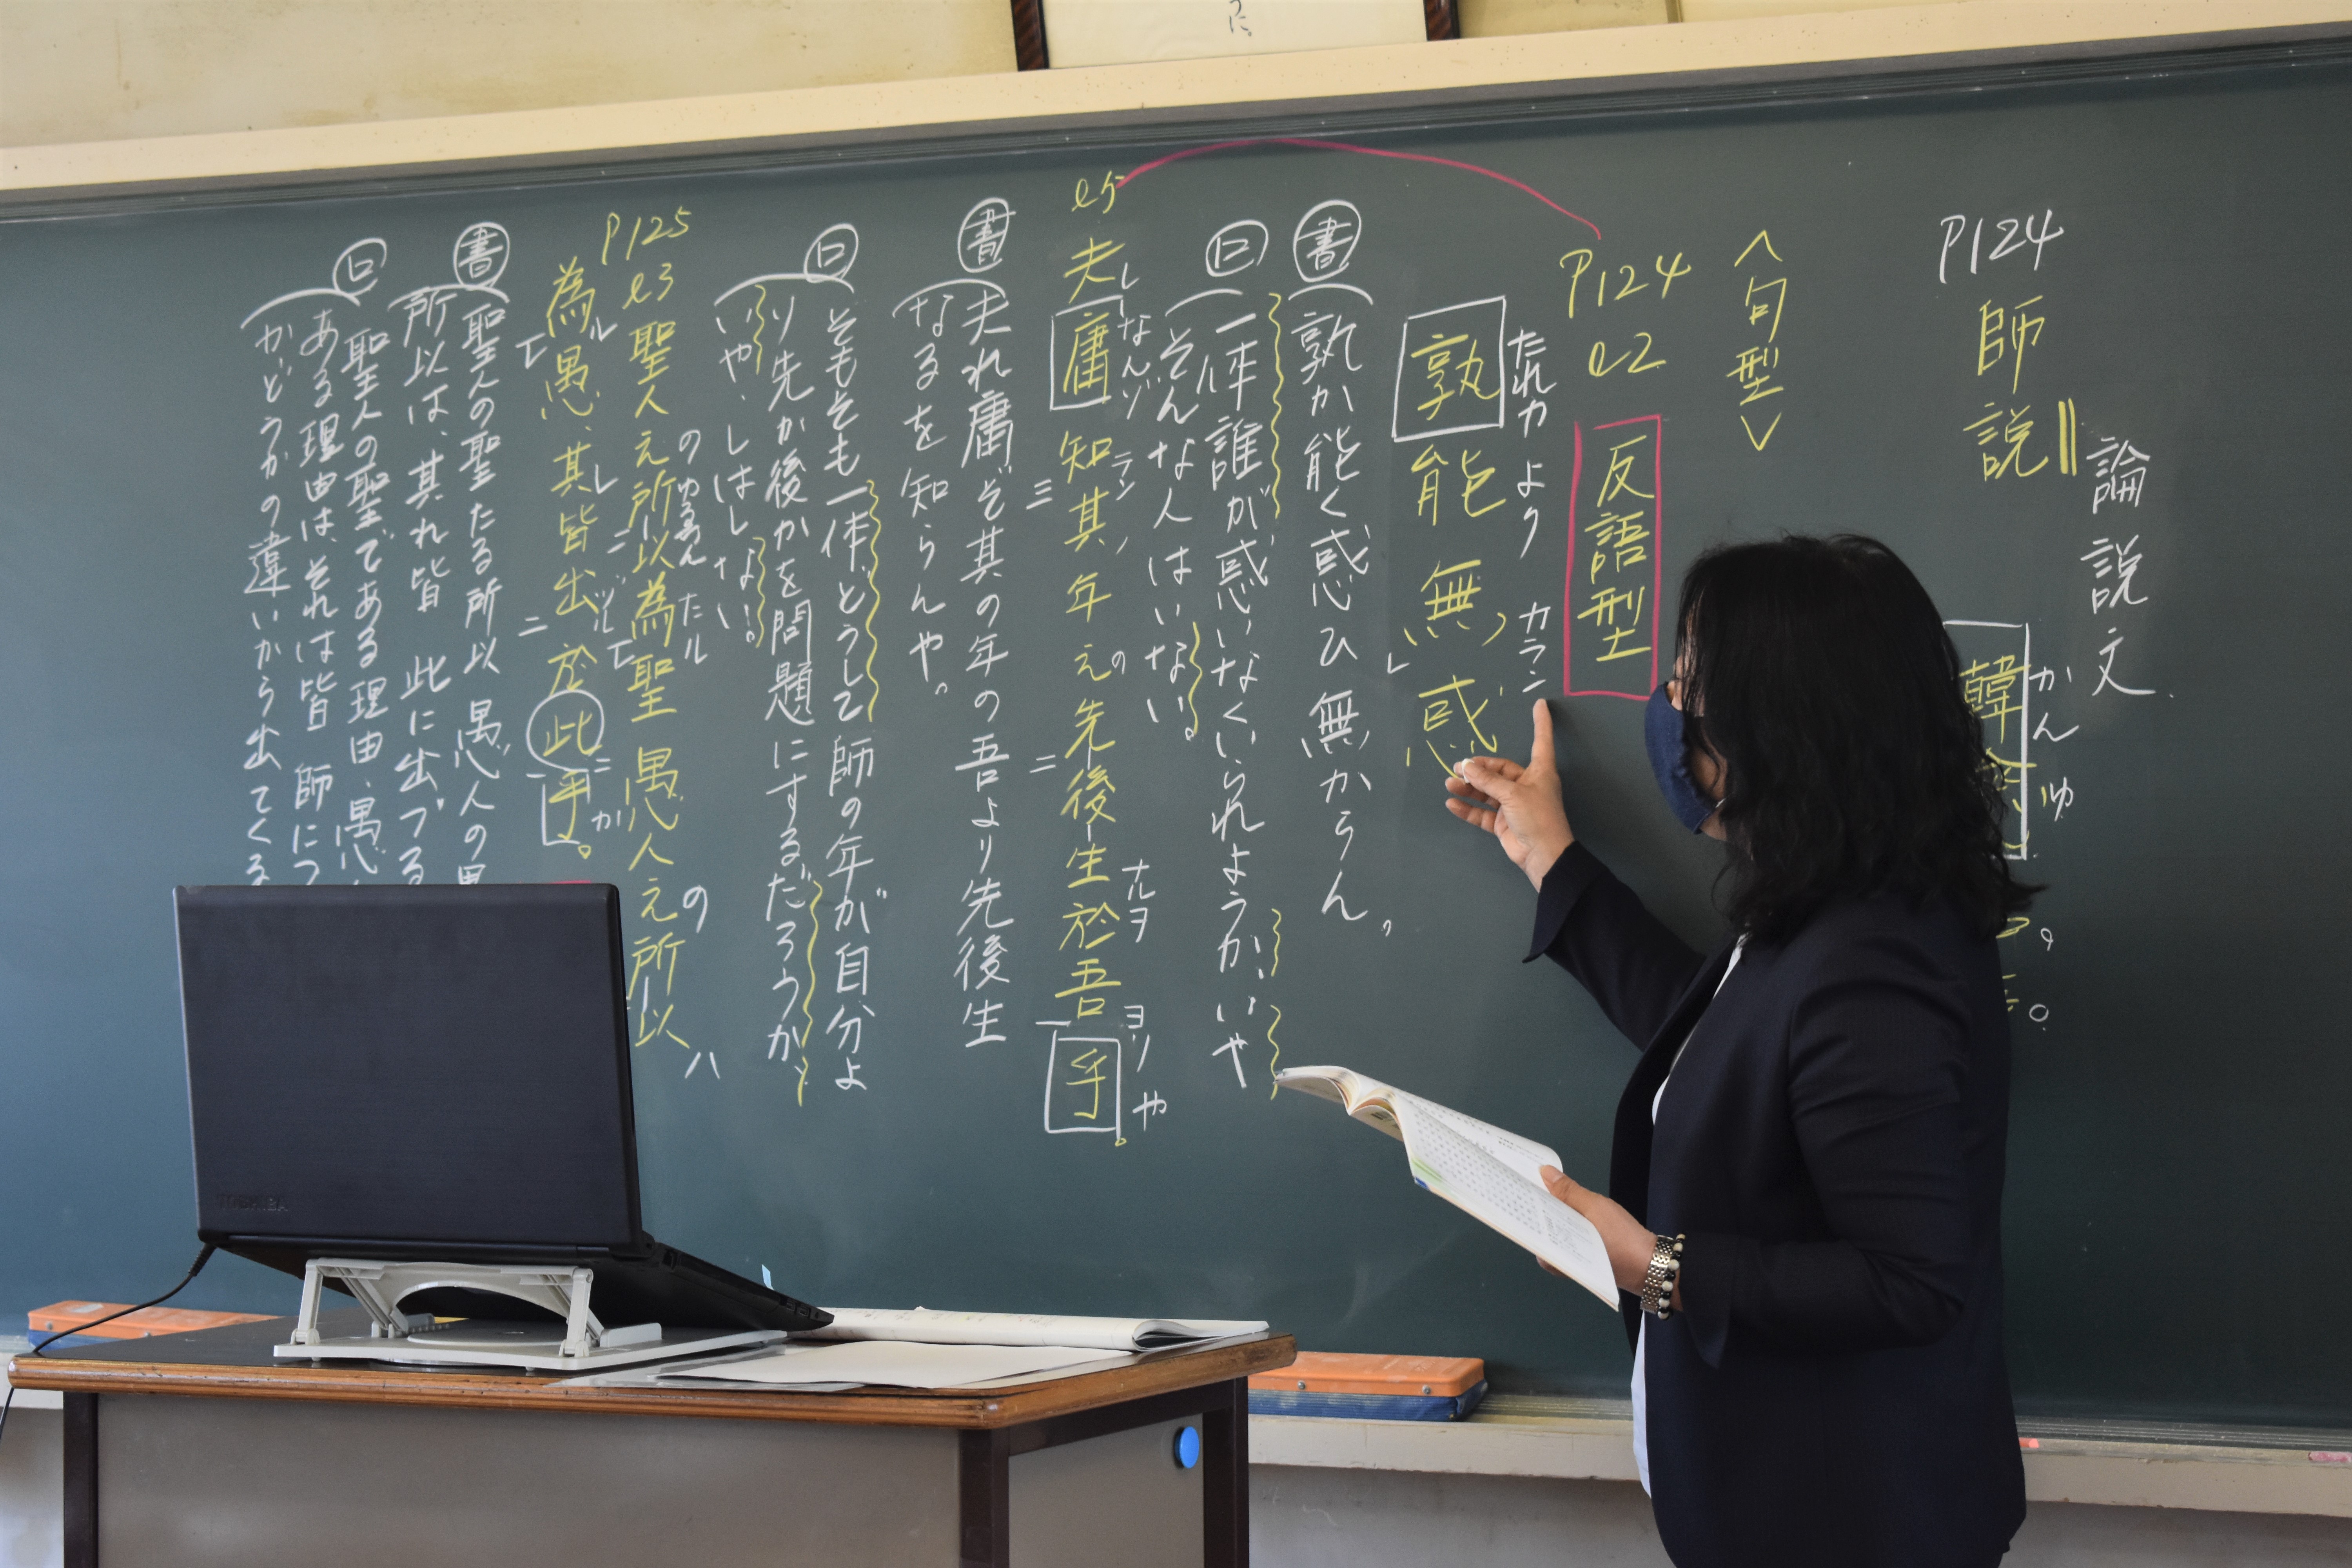 うに。
論説文
P124 師説
かんゆ
韓
〈句型〉
P124 l2 反語型
たれカ よク カラン
孰能無レ惑
書 孰か能く惑ひ無からん。
口 一体誰が惑いなくいられようか、いや
そんな人はいない。
l5 夫庸知其年之先後生於吾乎。
レ なんゾ ラン ノ の ナルヲ ヨリ や
三 二 一
書 夫れ庸ぞ其の年の吾より先後生
なるを知らんや。
口 そもそも一体どうして師の年が自分よ
り先か後かを問題にするだろうか、
いや、しはしない。
P125 l3 聖人之所以為聖愚人之所以
の ゆゑん たル の ハ
為愚、其皆出於此乎。
書 聖人の聖たる所以 愚人の
所以は、其れ皆 此に出づる
口 聖人の聖である理由、愚
ある理由は、それは皆 師につ
かどうかの違いから出てくる
TOSHIBA